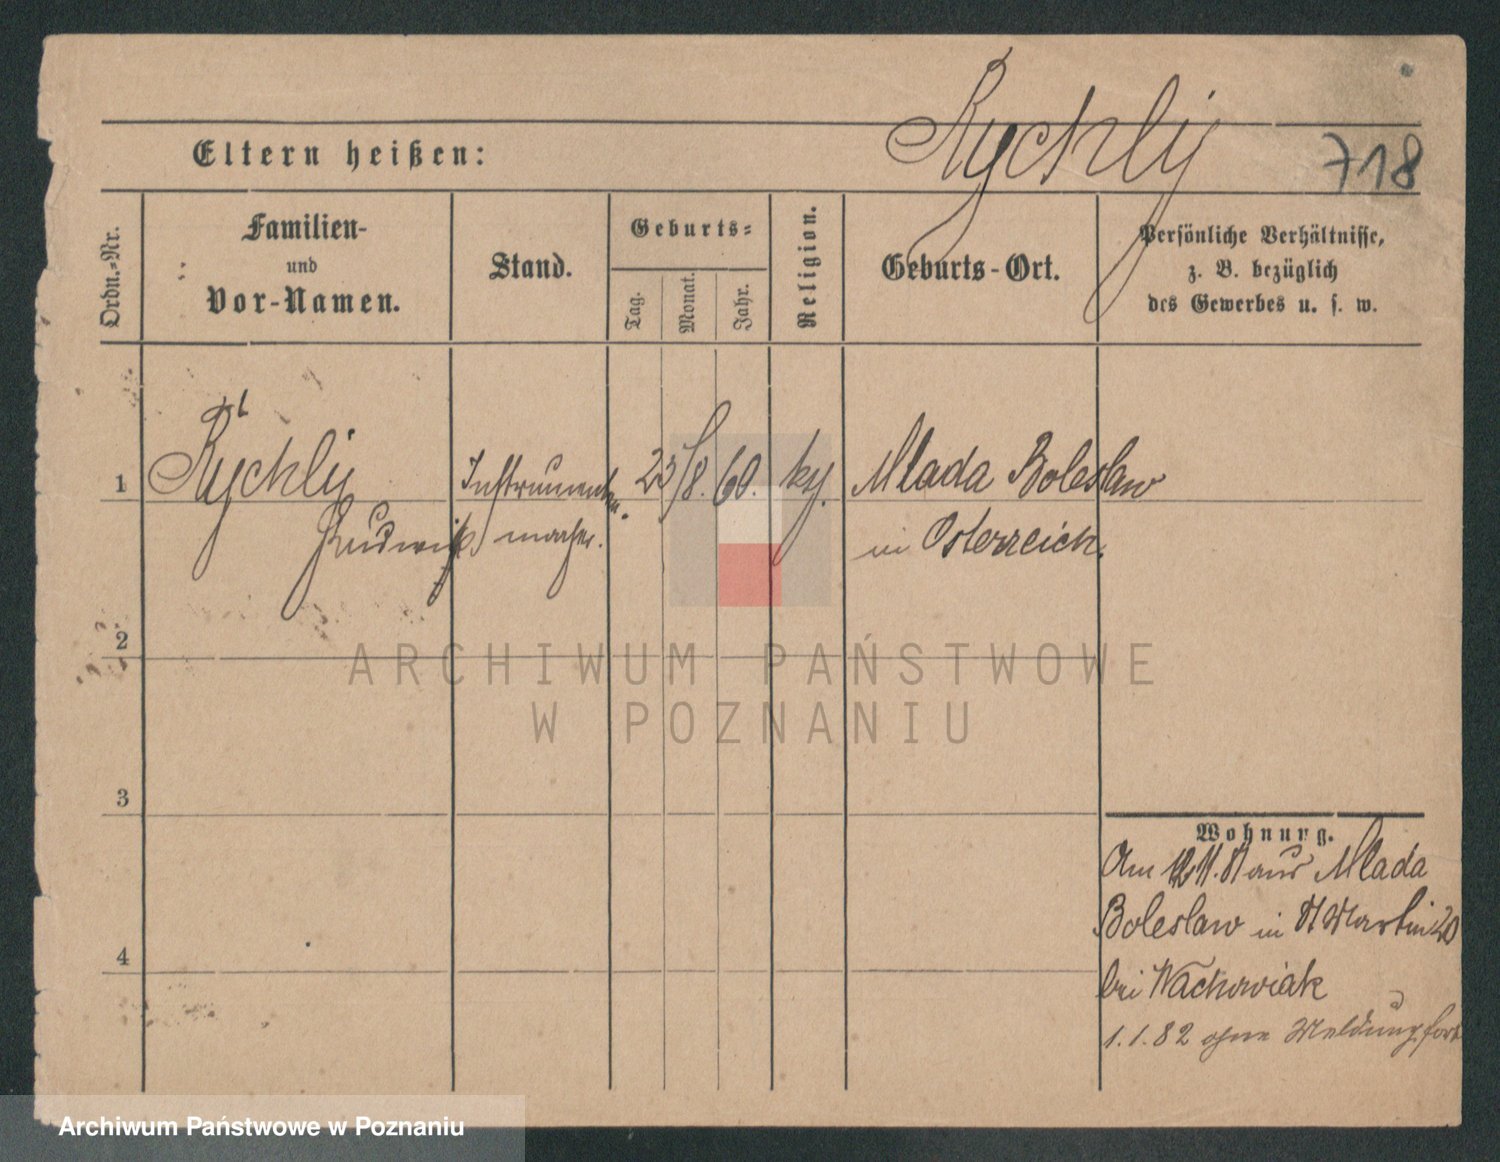 Rychly
Eltern heißen:
718
Ordn.-Nr.
Familien-
und
Vor-Namen.
Stand.
Geburts-
Tag.
Monat.
Jahr.
Religion.
Geburts-Ort.
Persönliche Verhältnisse,
z. B. bezüglich
des Gewerbes u. s. w.
1
Rychly
Ludwig
Instrumenten-
macher.
23/8. 60.
Mlada Boleslaw
in Österreich.
2
ARCHIWUM PAŃSTWOWE
W POZNANIU
3
Wohnung.
Am 12 11. 81 aus Mlada
Boleslaw in St Martin 20
bei Wachowiak
1.1.82 ohne Meldung fort
4
Archiwum Państwowe w Poznaniu